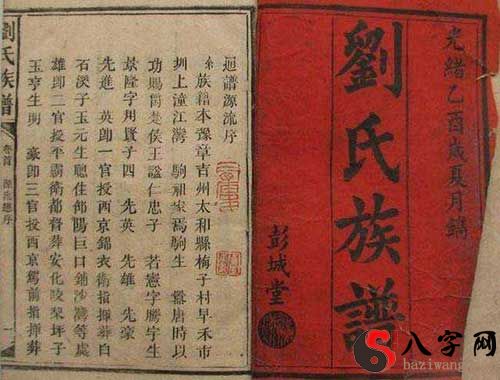 光緒乙酉歲夏月鐫
劉氏族譜
彭城堂
通譜源流序
族籍本豫章吉州太和縣梅子村早禾市
圳上潼江灣 駒祖家焉駒生 唐時以
功賜爵楚侯王諡仁忠子 若憲字勝宇生
景隆字用賢子四 先英 先雄 先豪
先進 英郎一官授西京錦衣衛指揮葬
石漠子玉元生聰住師陽巨口鋪沙灣等處
雄郎二官授平霸衛都督葬安化陵梁坪子
玉亨生明 豪郎三官授西京駕前指揮葬
劉氏族譜
卷首
源流總序
一
八字网
baziwang